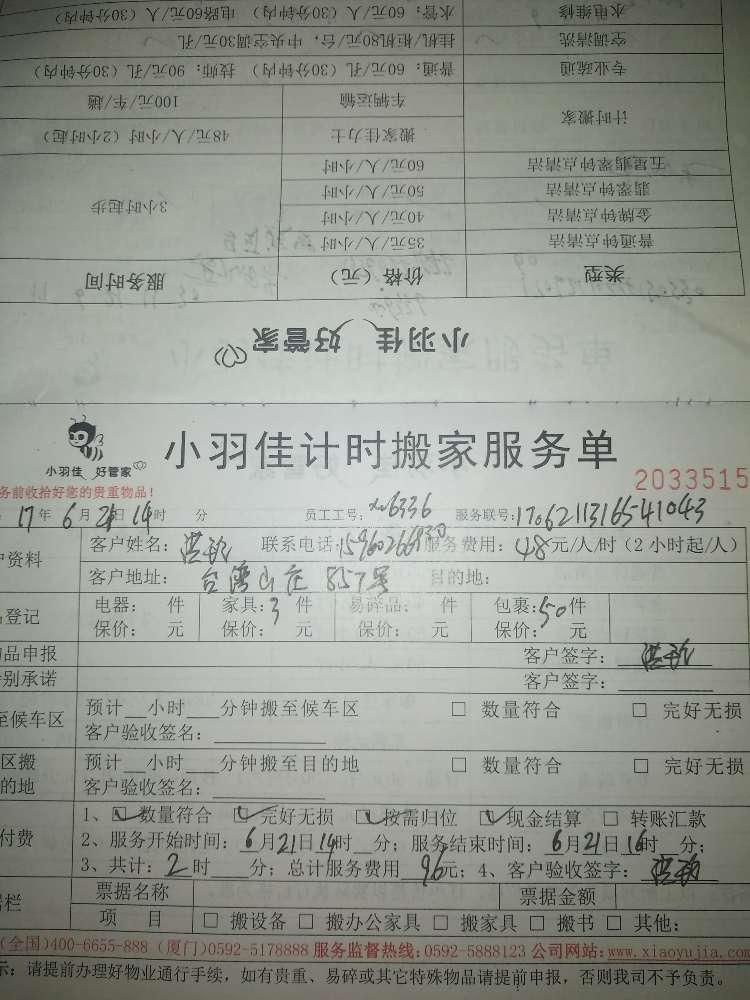 水电维修 水管：60元/人（30分钟内） 电路60元（30分钟内）
空调清洗 挂机/柜机80元/台，中央空调30元/孔
专业疏通 普通：60元/孔（30分钟内） 技师：90元/孔（30分钟内）
计时搬家 车辆运输 100元/车/趟
搬家佳力士 48元/人/小时（2小时起）
五星翡翠钟点清洁 60元/人/小时
翡翠钟点清洁 50元/人/小时 3小时起步
金牌钟点清洁 40元/人/小时
普通钟点清洁 35元/人/小时
类型 价格（元） 服务时间
小羽佳 好管家
小羽佳 好管家
小羽佳计时搬家服务单
2033515
务前收拾好您的贵重物品！
17年6月21日14时 分 员工工号：xm6336 服务联号：170621131654 1043
户资料 客户姓名：洪珍 联系电话： 服务费用：48元/人/时（2小时起/人）
客户地址：台湾山庄857号 目的地：
登记 电器： 件 家具：3件 易碎品： 件 包裹：50件
保价： 元 保价： 元 保价： 元 保价： 元
品申报 客户签字：洪珍
别承诺 客户签字：
至候车区 预计__小时___分钟搬至候车区 □ 数量符合 □ 完好无损
客户验收签名：
区搬 预计__小时___分钟搬至目的地 □ 数量符合 □ 完好无损
的地 客户验收签名：
付费 1、☑数量符合 ☑完好无损 ☑按需归位 ☑现金结算 □ 转账汇款
2、服务开始时间：6月21日14时__分；服务结束时间：6月21日16时__分；
3、共计：2时___分；总计服务费用 96元；4、客户验收签字：洪珍
栏 票据名称 票据金额
项 目 □ 搬设备 □ 搬办公家具 □ 搬家具 □ 搬书 □ 其他：
(全国)400-6655-888（厦门)0592-5178888 服务监督热线:0592-5888123 公司网站:www.xiaoyujia.com
示：请提前办理好物业通行手续，如有贵重、易碎或其它特殊物品请提前申报，否则我司不予负责。